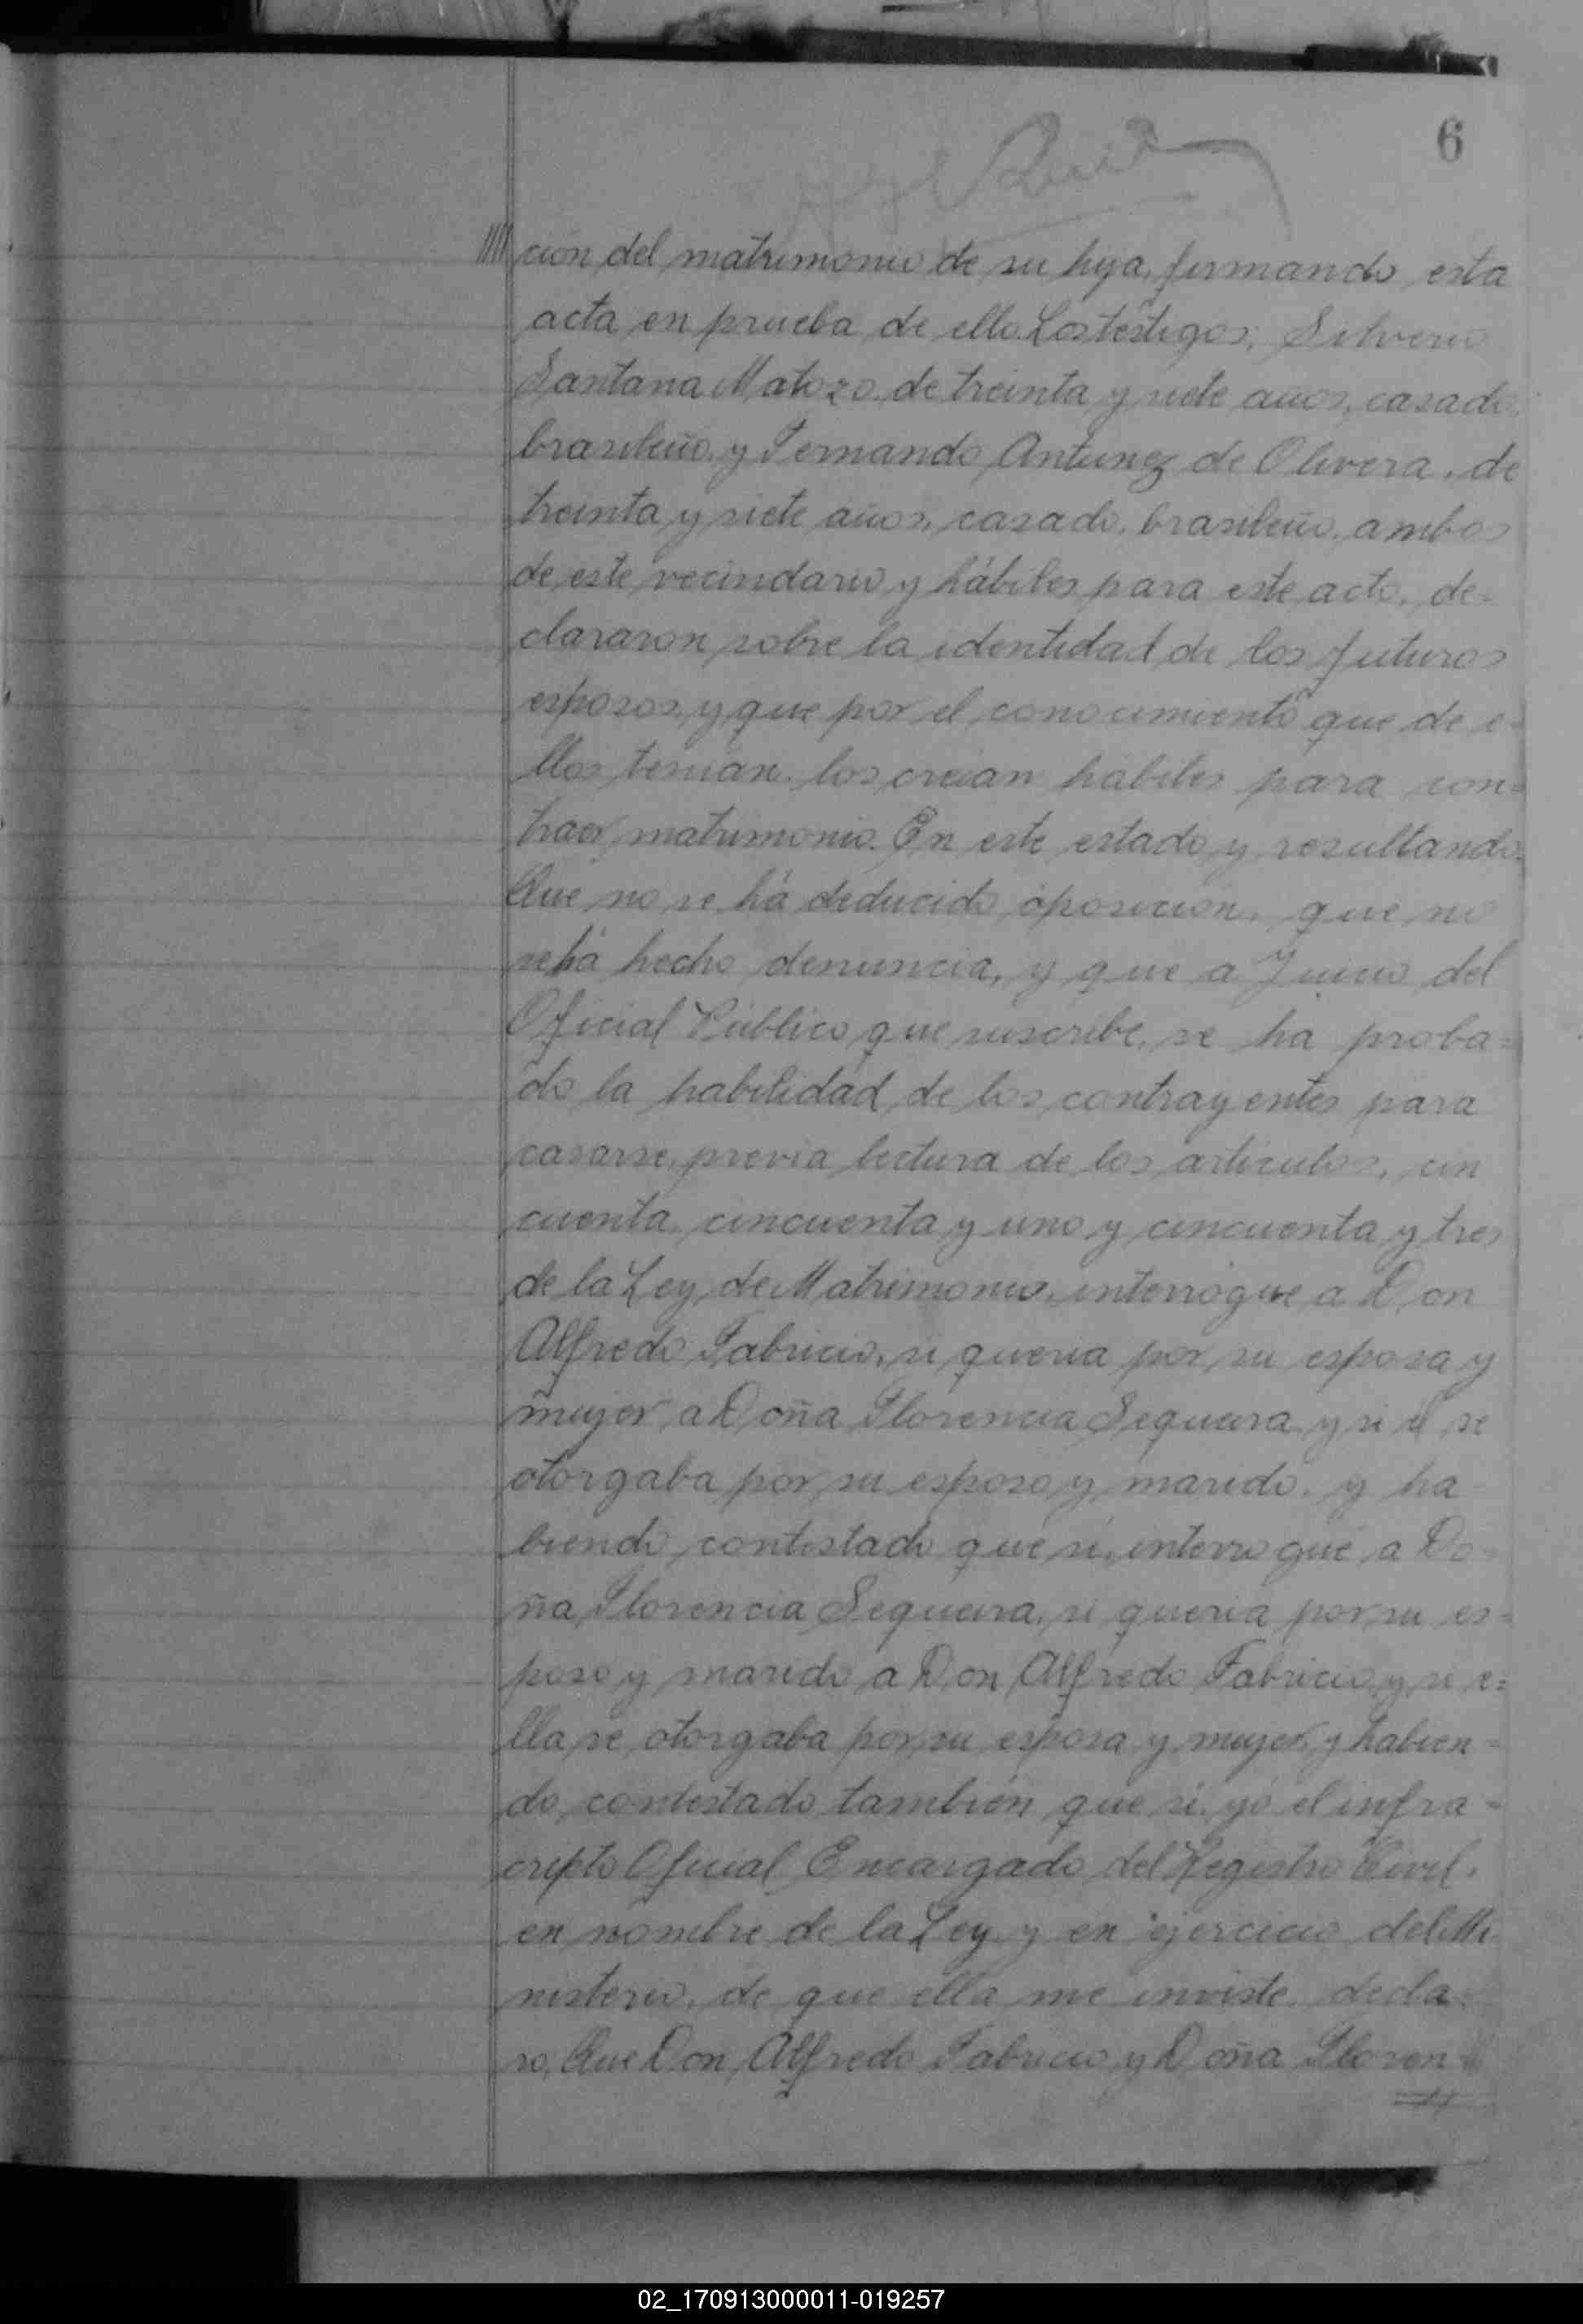 6
ción del matrimonio de su hija, firmando esta
acta en prueba de ello. Los testigos; Silverio
Santana Matozo, de treinta y siete años, casado,
brasileño, y Fernando Antunez de Olivera, de
treinta y siete años, casado, brasileño, ambos
de este vecindario y hábiles para este acto, de=
clararon sobre la identidad de los futuros
esposos, y que por el conocimiento que de e=
llos tenían los creían hábiles para con=
traer matrimonio. En este estado y resultando.
Que no se há deducido oposición, que no
se há hecho denuncia, y que a Juicio del
Oficial Público que suscribe, se ha proba=
do la habilidad de los contrayentes para
casarse, previa lectura de los artículos, cin
cuenta, cincuenta y uno y cincuenta y tres
de la Ley de Matrimonio, interrogué a Don
Alfredo Fabricio, si queria por su esposa y
mujer a Doña Florencia Sequeira y si él se
otorgaba por su esposo y marido. y ha
biendo contestado que sí, interrogué a Do=
ña Florencia Sequeira, si queria por su es=
poso y marido a Don Alfredo Fabricio, y si e=
lla se otorgaba por su esposa y mujer, y habien=
do contestado también que sí, yó el infra=
cripto Oficial Encargado del Registro Civil,
en nombre de la Ley y en ejercicio del Mi
nisterio, de que ella me inviste decla=
ro, Que Don Alfredo Fabricio y Doña Floren=
02_170913000011-019257